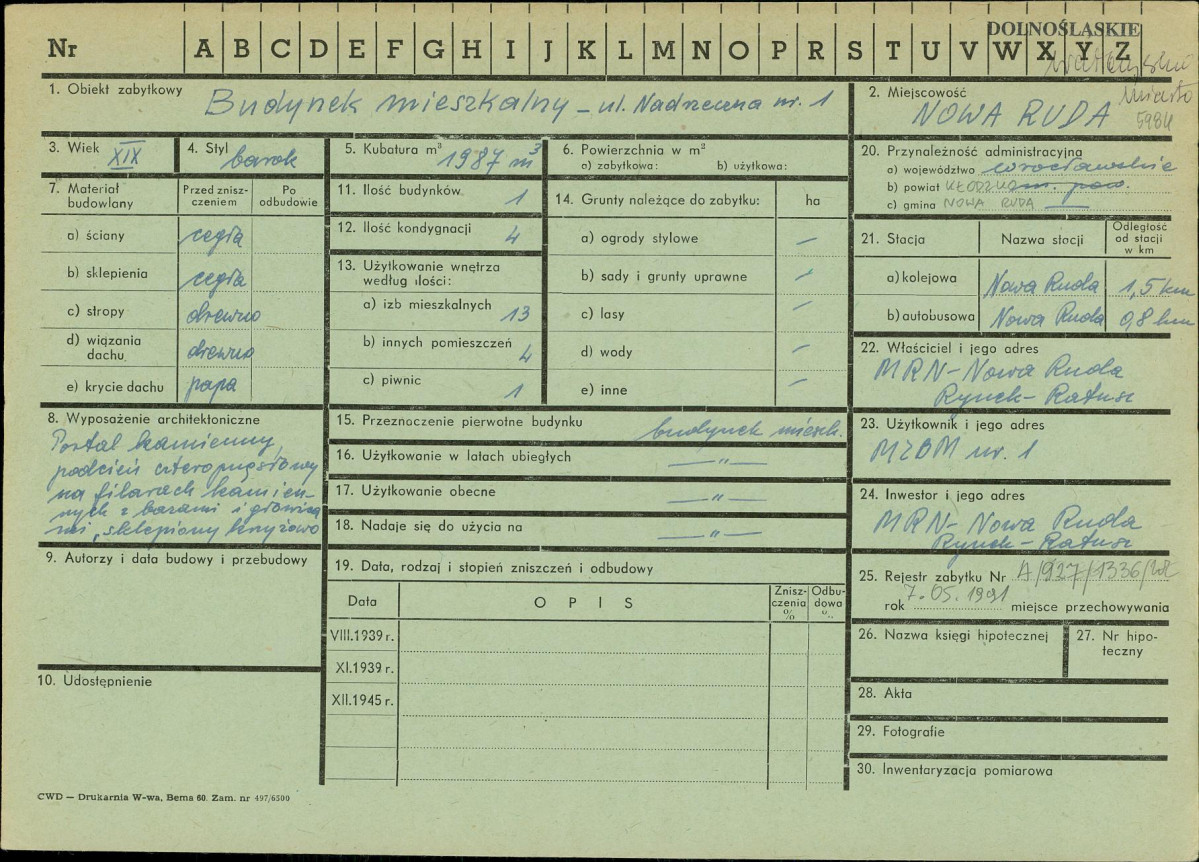 DOLNOŚLĄSKIE
Nr A B C D E F G H I J K L M N O P R S T U V W X Y Z
wałbrzyskie
miasto
5984
1. Obiekt zabytkowy Budynek mieszkalny – ul. Nadrzeczna nr. 1
2. Miejscowość
NOWA RUDA
3. Wiek
XIX
4. Styl
barok
5. Kubatura m³
1987 m³
6. Powierzchnia w m²
a) zabytkowa: b) użytkowa:
7. Materiał budowlany
Przed zniszczeniem
Po odbudowie
a) ściany cegła
b) sklepienia cegła
c) stropy drewno
d) wiązania dachu drewno
e) krycie dachu papa
8. Wyposażenie architektoniczne
Portal kamienny,
podcień czteroprzęsłowy
na filarach kamien-
nych z bazami i głowica
mi, sklepiony krzyżowo
9. Autorzy i data budowy i przebudowy
10. Udostępnienie
11. Ilość budynków 1
12. Ilość kondygnacji 4
13. Użytkowanie wnętrza
według ilości:
a) izb mieszkalnych 13
b) innych pomieszczeń 4
c) piwnic 1
14. Grunty należące do zabytku: ha
a) ogrody stylowe –
b) sady i grunty uprawne –
c) lasy –
d) wody –
e) inne –
15. Przeznaczenie pierwotne budynku budynek mieszk.
16. Użytkowanie w latach ubiegłych —"—
17. Użytkowanie obecne —"—
18. Nadaje się do użycia na —"—
19. Data, rodzaj i stopień zniszczeń i odbudowy
Data OPIS Zniszczenia % Odbudowa %
VIII.1939 r.
XI.1939 r.
XII.1945 r.
20. Przynależność administracyjna
a) województwo wrocławskie
b) powiat KŁODZKO m. pow.
c) gmina NOWA RUDA —
21. Stacja
Nazwa stacji
Odległość od stacji w km
a) kolejowa Nowa Ruda 1,5 km
b) autobusowa Nowa Ruda 0,8 km
22. Właściciel i jego adres
MRN – Nowa Ruda
Rynek – Ratusz
23. Użytkownik i jego adres
MZBM nr. 1
24. Inwestor i jego adres
MRN – Nowa Ruda
Rynek – Ratusz
25. Rejestr zabytku Nr A/927/1336/WŁ
rok 7.05.1991 miejsce przechowywania
26. Nazwa księgi hipotecznej
27. Nr hipo-
teczny
28. Akta
29. Fotografie
30. Inwentaryzacja pomiarowa
CWD — Drukarnia W-wa, Bema 60. Zam. nr 497/6500